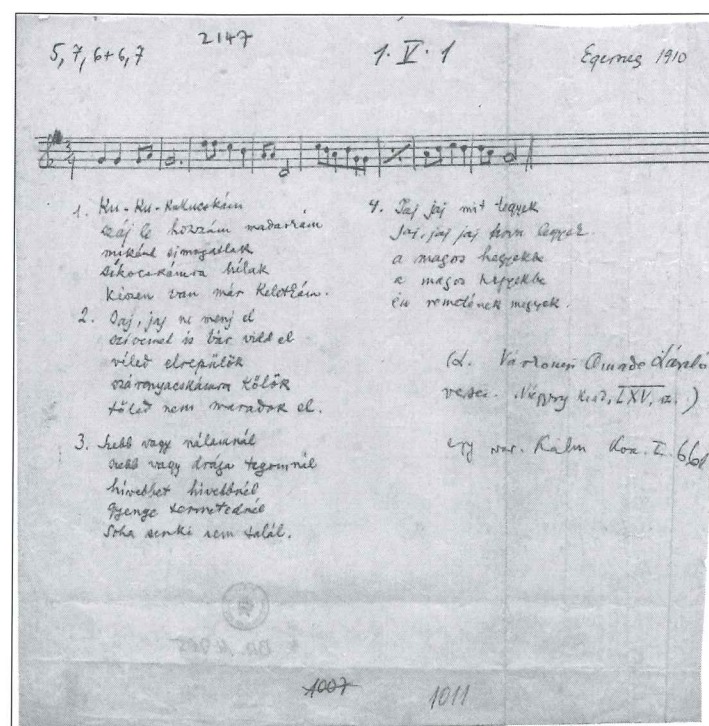 5, 7, 6+6, 7
2147
1. V. 1
Egerszeg 1910
1. Ku-Ku-Kukucskám
szálj le hozzám madarkám
miként simogatlak
hívlak
Készen van már Kelotkám.
2. Jaj, jaj ne menj el
szivemet is bár vidd el
véled elrepülök
szárnyacskámra költök
tőled nem maradok el.
3. Szebb vagy nálamnál
szebb vagy drága
hivebbet hivebbnél
gyenge termetednél
Soha senki nem talál.
4. Jaj jaj mit tegyek
Jaj, jaj jaj hova legyek
a magos hegyekbe
a magos hegyekbe
én remetének megyek.
(L. Várkonyi Amade László
versei. Négyesy kiad, LXV, a.)
egy var. Kálm Kosz. I. 66
1007
1011